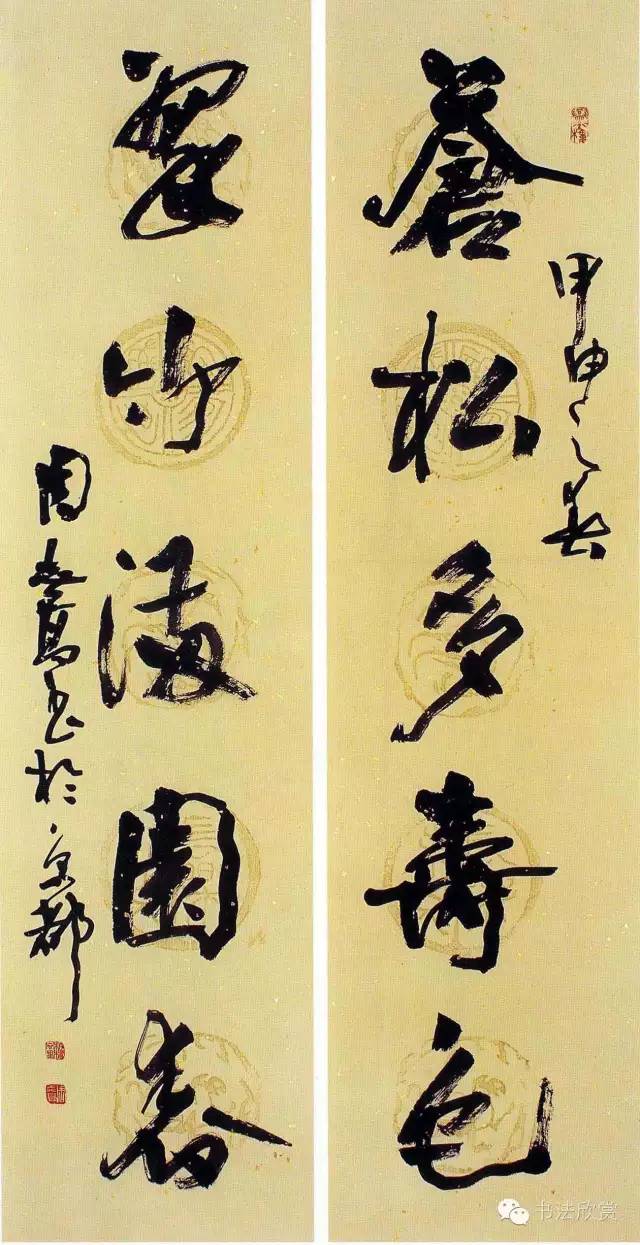 甲申之春
蒼松多壽色
翠竹滿園春
周志高书於京都
书法欣赏